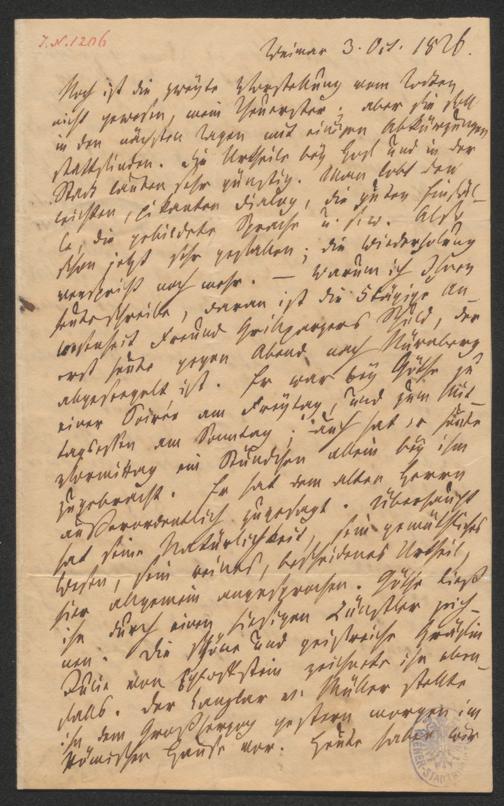 I.N. 1206
Weimar 3. Oct. 1826.
Noch ist die zweyte Vorstellung vom Todten
nicht gewesen, mein Theuerster; aber sie soll
in den nächsten Tagen mit einigen Abkürzungen
stattfinden. Die Urtheile bey Hof und in der
Stadt lauten sehr günstig. Man lobt den
leichten, pikanten Dialog, die guten Einfäl-
le, die gebildete Sprache u. s. w. Also
schon jetzt sehr gefallen; die Wiederholung
verspricht noch mehr. — Warum ich Ihnen
heute schreibe, daran ist die 5tägige An-
wesenheit Freund Grillparzers Schuld, der
erst heute gegen Abend nach Nürnberg
abgesegelt ist. Er war bey Göthe zu
einer Soirée am Freytag, und zum Mit-
tagsessen am Sonntag; auch hat er heute
Vormittag ein Stündchen allein bey ihm
zugebracht. Er hat dem alten Herrn
außerordentlich zugesagt. Überhaupt
hat seine Natürlichkeit, sein gemüthliches
Wesen, sein reines, bescheidenes Urtheil,
hier allgemein angesprochen. Göthe ließ
ihn durch einen hiesigen Künstler zeich-
nen. Die schöne und geistreiche Gräfin
Julie von Egloffstein zeichnete ihn eben-
falls. Der Kanzler v. Müller stellte
ihn dem Großherzog gestern morgen im
Römischen Hause vor. Heute haben wir